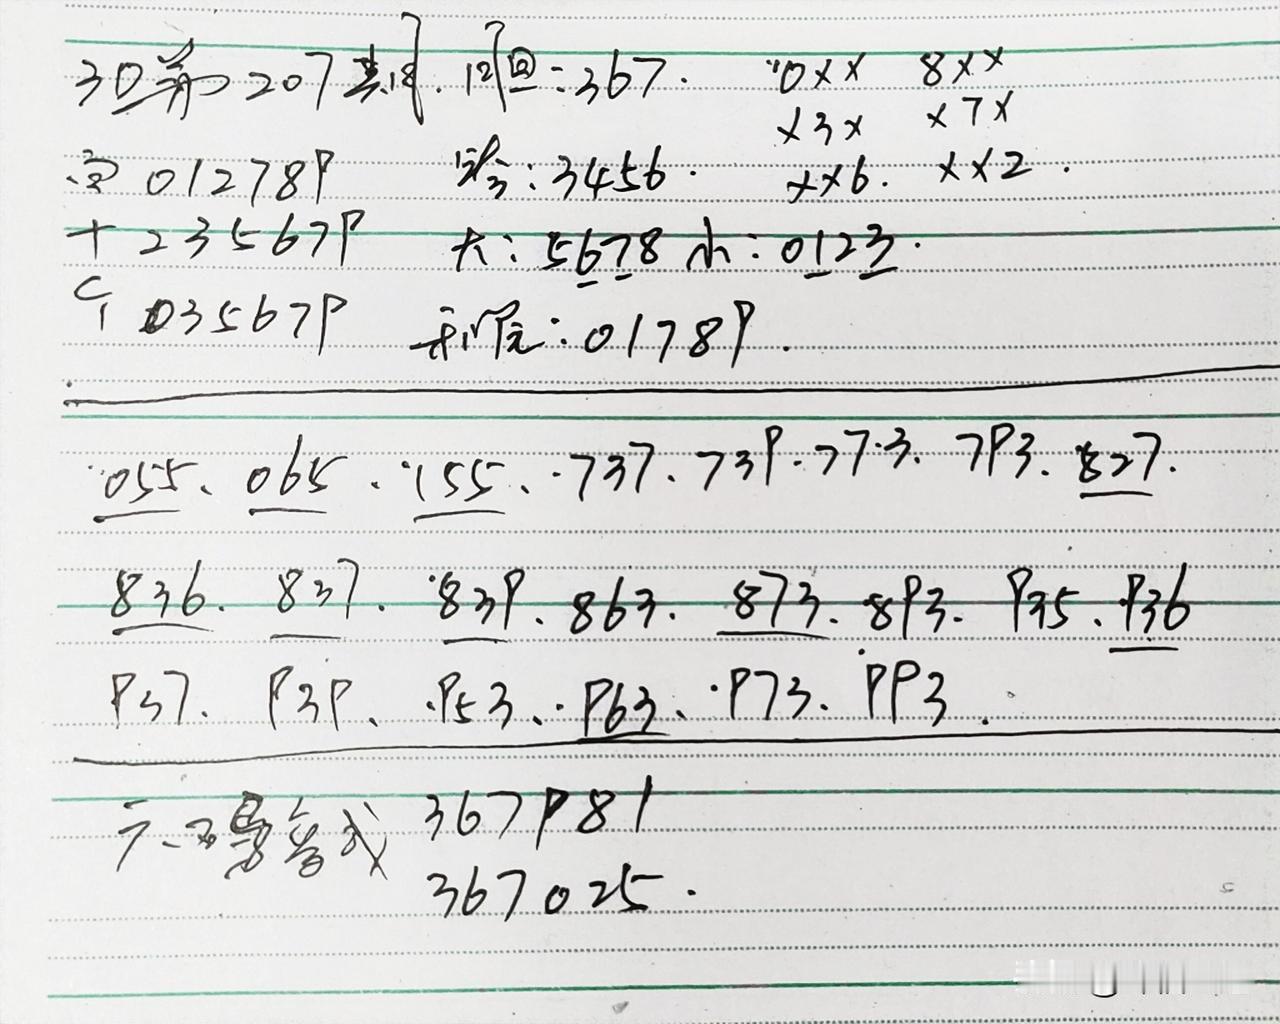 3D第207期. 回:367. 0×× 8××
×3× ×7×
百 012789 :3456. ××6. ××2.
十 235679 大:5678 小:0123.
个 035679 :01789.
055. 065. 155. 737. 739. 773. 793. 827.
836. 837. 839. 863. 873. 893. 935. 936
937. 939. 953. 963. 973. 993.
六码备战 367981
367025.